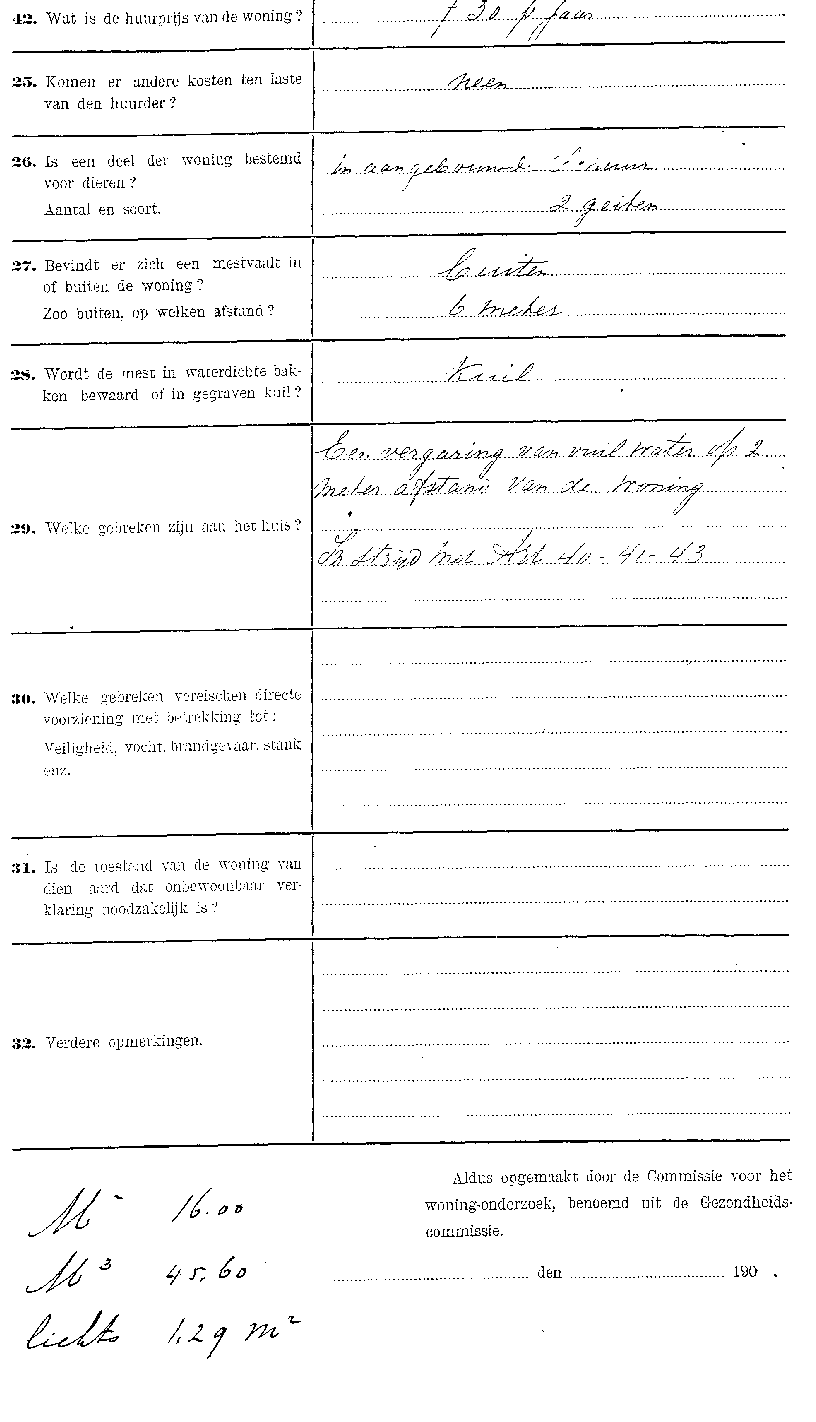 42. Wat is de huurprijs van de woning? f 30 p jaar
25. Komen er andere kosten ten laste
van den huurder? neen
26. Is een deel der woning bestemd
voor dieren? in aangebouwde schuur
Aantal en soort. 2 geiten
27. Bevindt er zich een mestvaalt in
of buiten de woning? buiten
Zoo buiten, op welken afstand? 6 meter
28. Wordt de mest in waterdichte bak-
ken bewaard of in gegraven kuil? Kuil
Een vergaring van vuil water op 2
meter afstand van de woning
29. Welke gebreken zijn aan het huis?
In strijd met Art 40 - 41 - 43
30. Welke gebreken vereischen directe
voorziening met betrekking tot:
Veiligheid, vocht, brandgevaar, stank
enz.
31. Is de toestand van de woning van
dien aard dat onbewoonbaar ver-
klaring noodzakelijk is?
32. Verdere opmerkingen.
Aldus opgemaakt door de Commissie voor het
woning-onderzoek, benoemd uit de Gezondheids-
commissie.
den 190 .
M² 16.00
M³ 45.60
lichts 1.29 m²